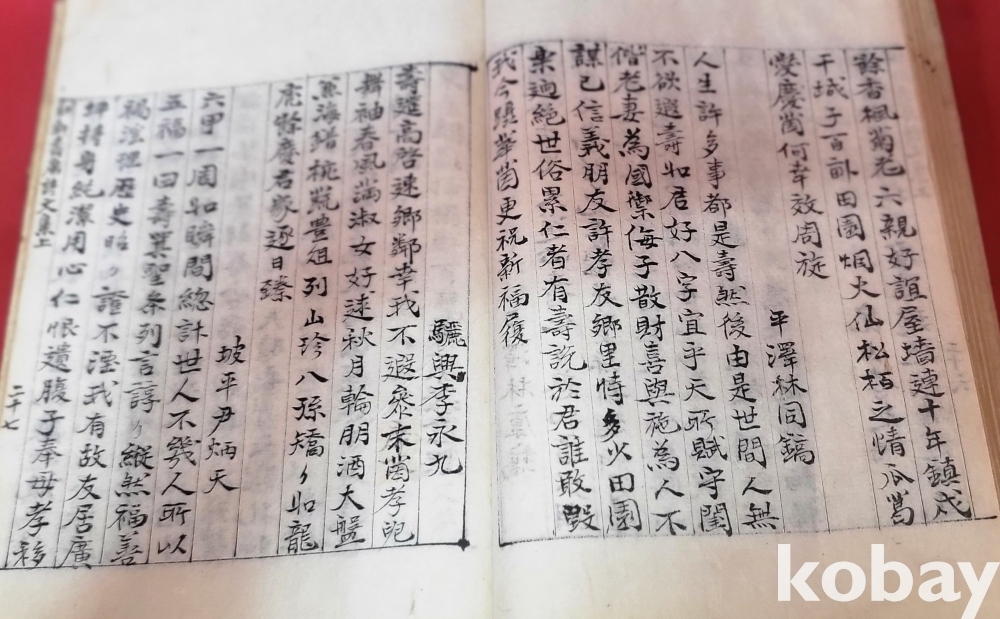 餘香楓菊老六親好誼屋墻連十年鎮戍
干城子百畝田園烟火仙松栢之情瓜葛
慶莚何幸效周旋
平澤林同鎬
人生許多事都是壽然後由是世間人無
不欲遐壽如君好八字宜乎天所賦守閨
偕老妻為國禦侮子散財喜與施為人不
謀已信義朋友許孝友鄉里恃多少田園
樂逈絕世俗累仁者有壽說於君誰敢毀
我今躋華莚更祝新福履
驪興李永九
壽莚高啓速鄉鄰幸我不遐參末莚孝兒
舞袖春風滿淑女好逑秋月輪朋酒大盤
兼海錯桃甁豊俎列山珍八孫矯々如龍
虎幣慶君家逐日臻
坡平尹炳天
六甲一周如瞬間總計世人不幾人所以
五福一曰壽箕聖条列言諄々縱然福善
禍淫理歷史昭々證不湮我有故友居廣
坤持身純潔用心仁恨遺腹子奉母孝移
詩文集上
二十七
kobay